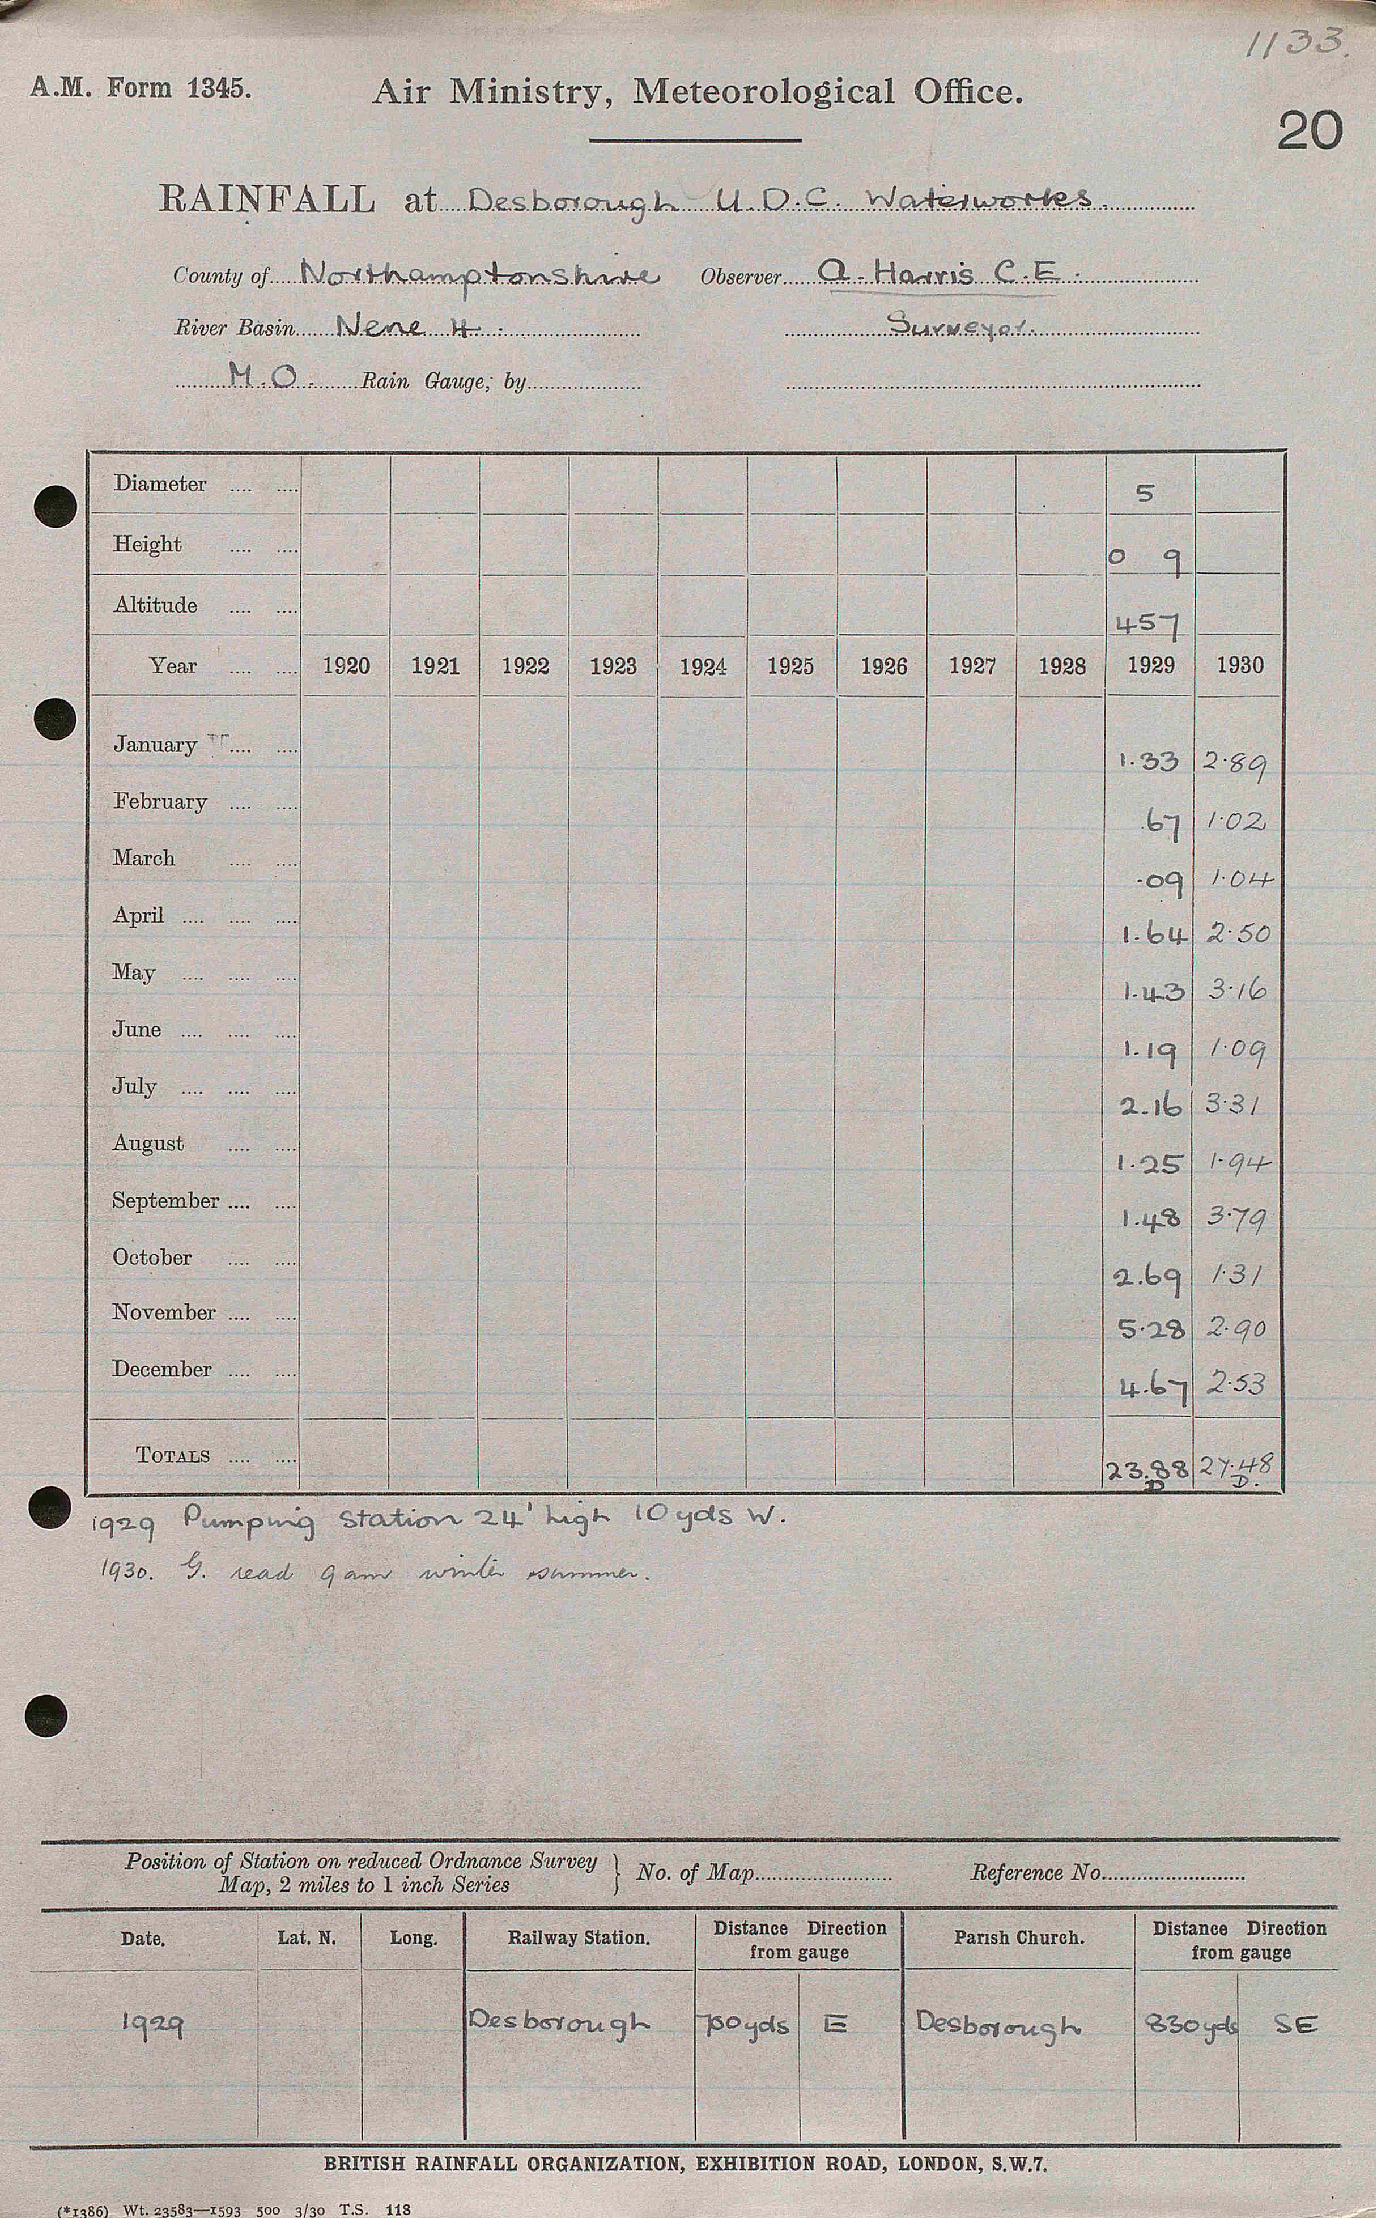 1133.
A.M. Form 1345. Air Ministry, Meteorological Office.
20
RAINFALL at Desborough U.D.C. Waterworks.
County of Northamptonshire Observer A. Harris C.E.
River Basin Nene 4. Surveyor.
M.O. Rain Gauge, by
Diameter 5
Height 0 9
Altitude 457
Year 1920 1921 1922 1923 1924 1925 1926 1927 1928 1929 1930
January 1.33 2.89
February .67 1.02
March .09 1.04
April 1.64 2.50
May 1.43 3.16
June 1.19 1.09
July 2.16 3.31
August 1.25 1.94
September 1.48 3.79
October 2.69 1.31
November 5.28 2.90
December 4.67 2.53
TOTALS 23.88 27.48
D D.
1929 Pumping Station 24' high 10 yds W.
1930. G. read 9am winter summer.
Position of Station on reduced Ordnance Survey
Map, 2 miles to 1 inch Series } No. of Map Reference No.
Date. Lat. N. Long. Railway Station. Distance Direction from gauge Parish Church. Distance Direction from gauge
1929 Desborough 700yds E Desborough 830yds SE
BRITISH RAINFALL ORGANIZATION, EXHIBITION ROAD, LONDON, S.W.7.
(*1386) Wt. 23583—1593 500 3/30 T.S. 118